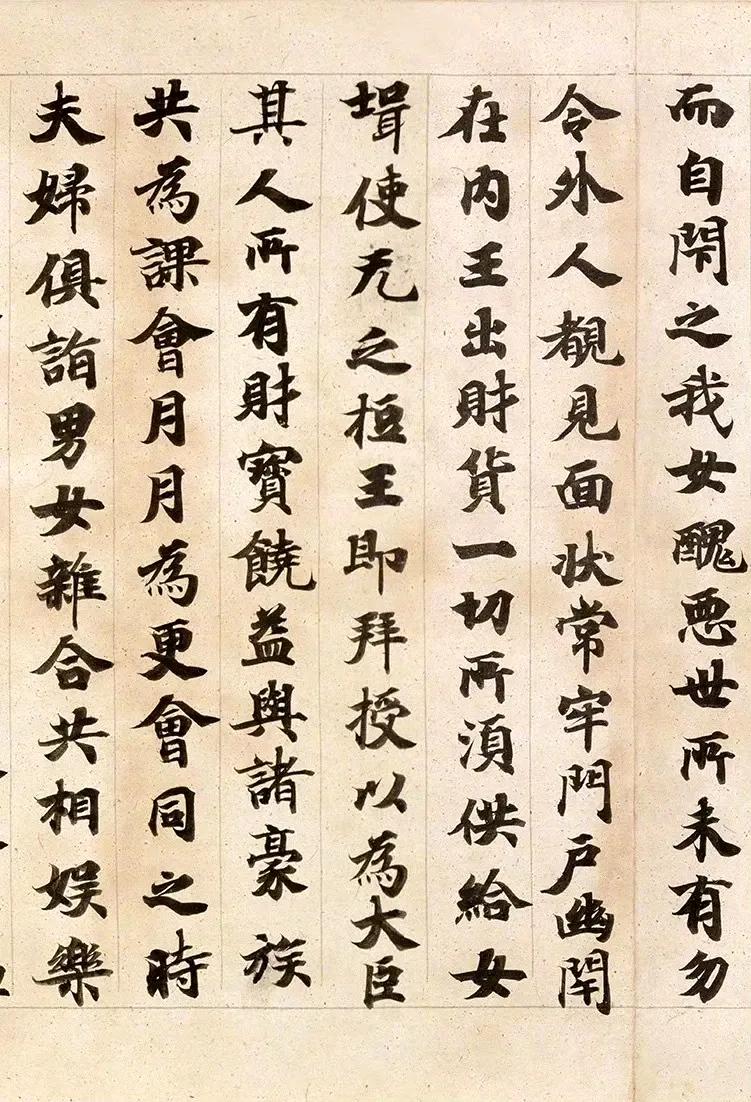 而自閇之我女醜悪世所未有勿
令外人覩見面状常牢門戶幽閇
在内王出財貨一切所湏供給女
壻使无乏短王即拜授以為大臣
其人所有財寳饒益與諸豪族
共為課會月月為更會同之時
夫婦俱詣男女雜合共相娱樂